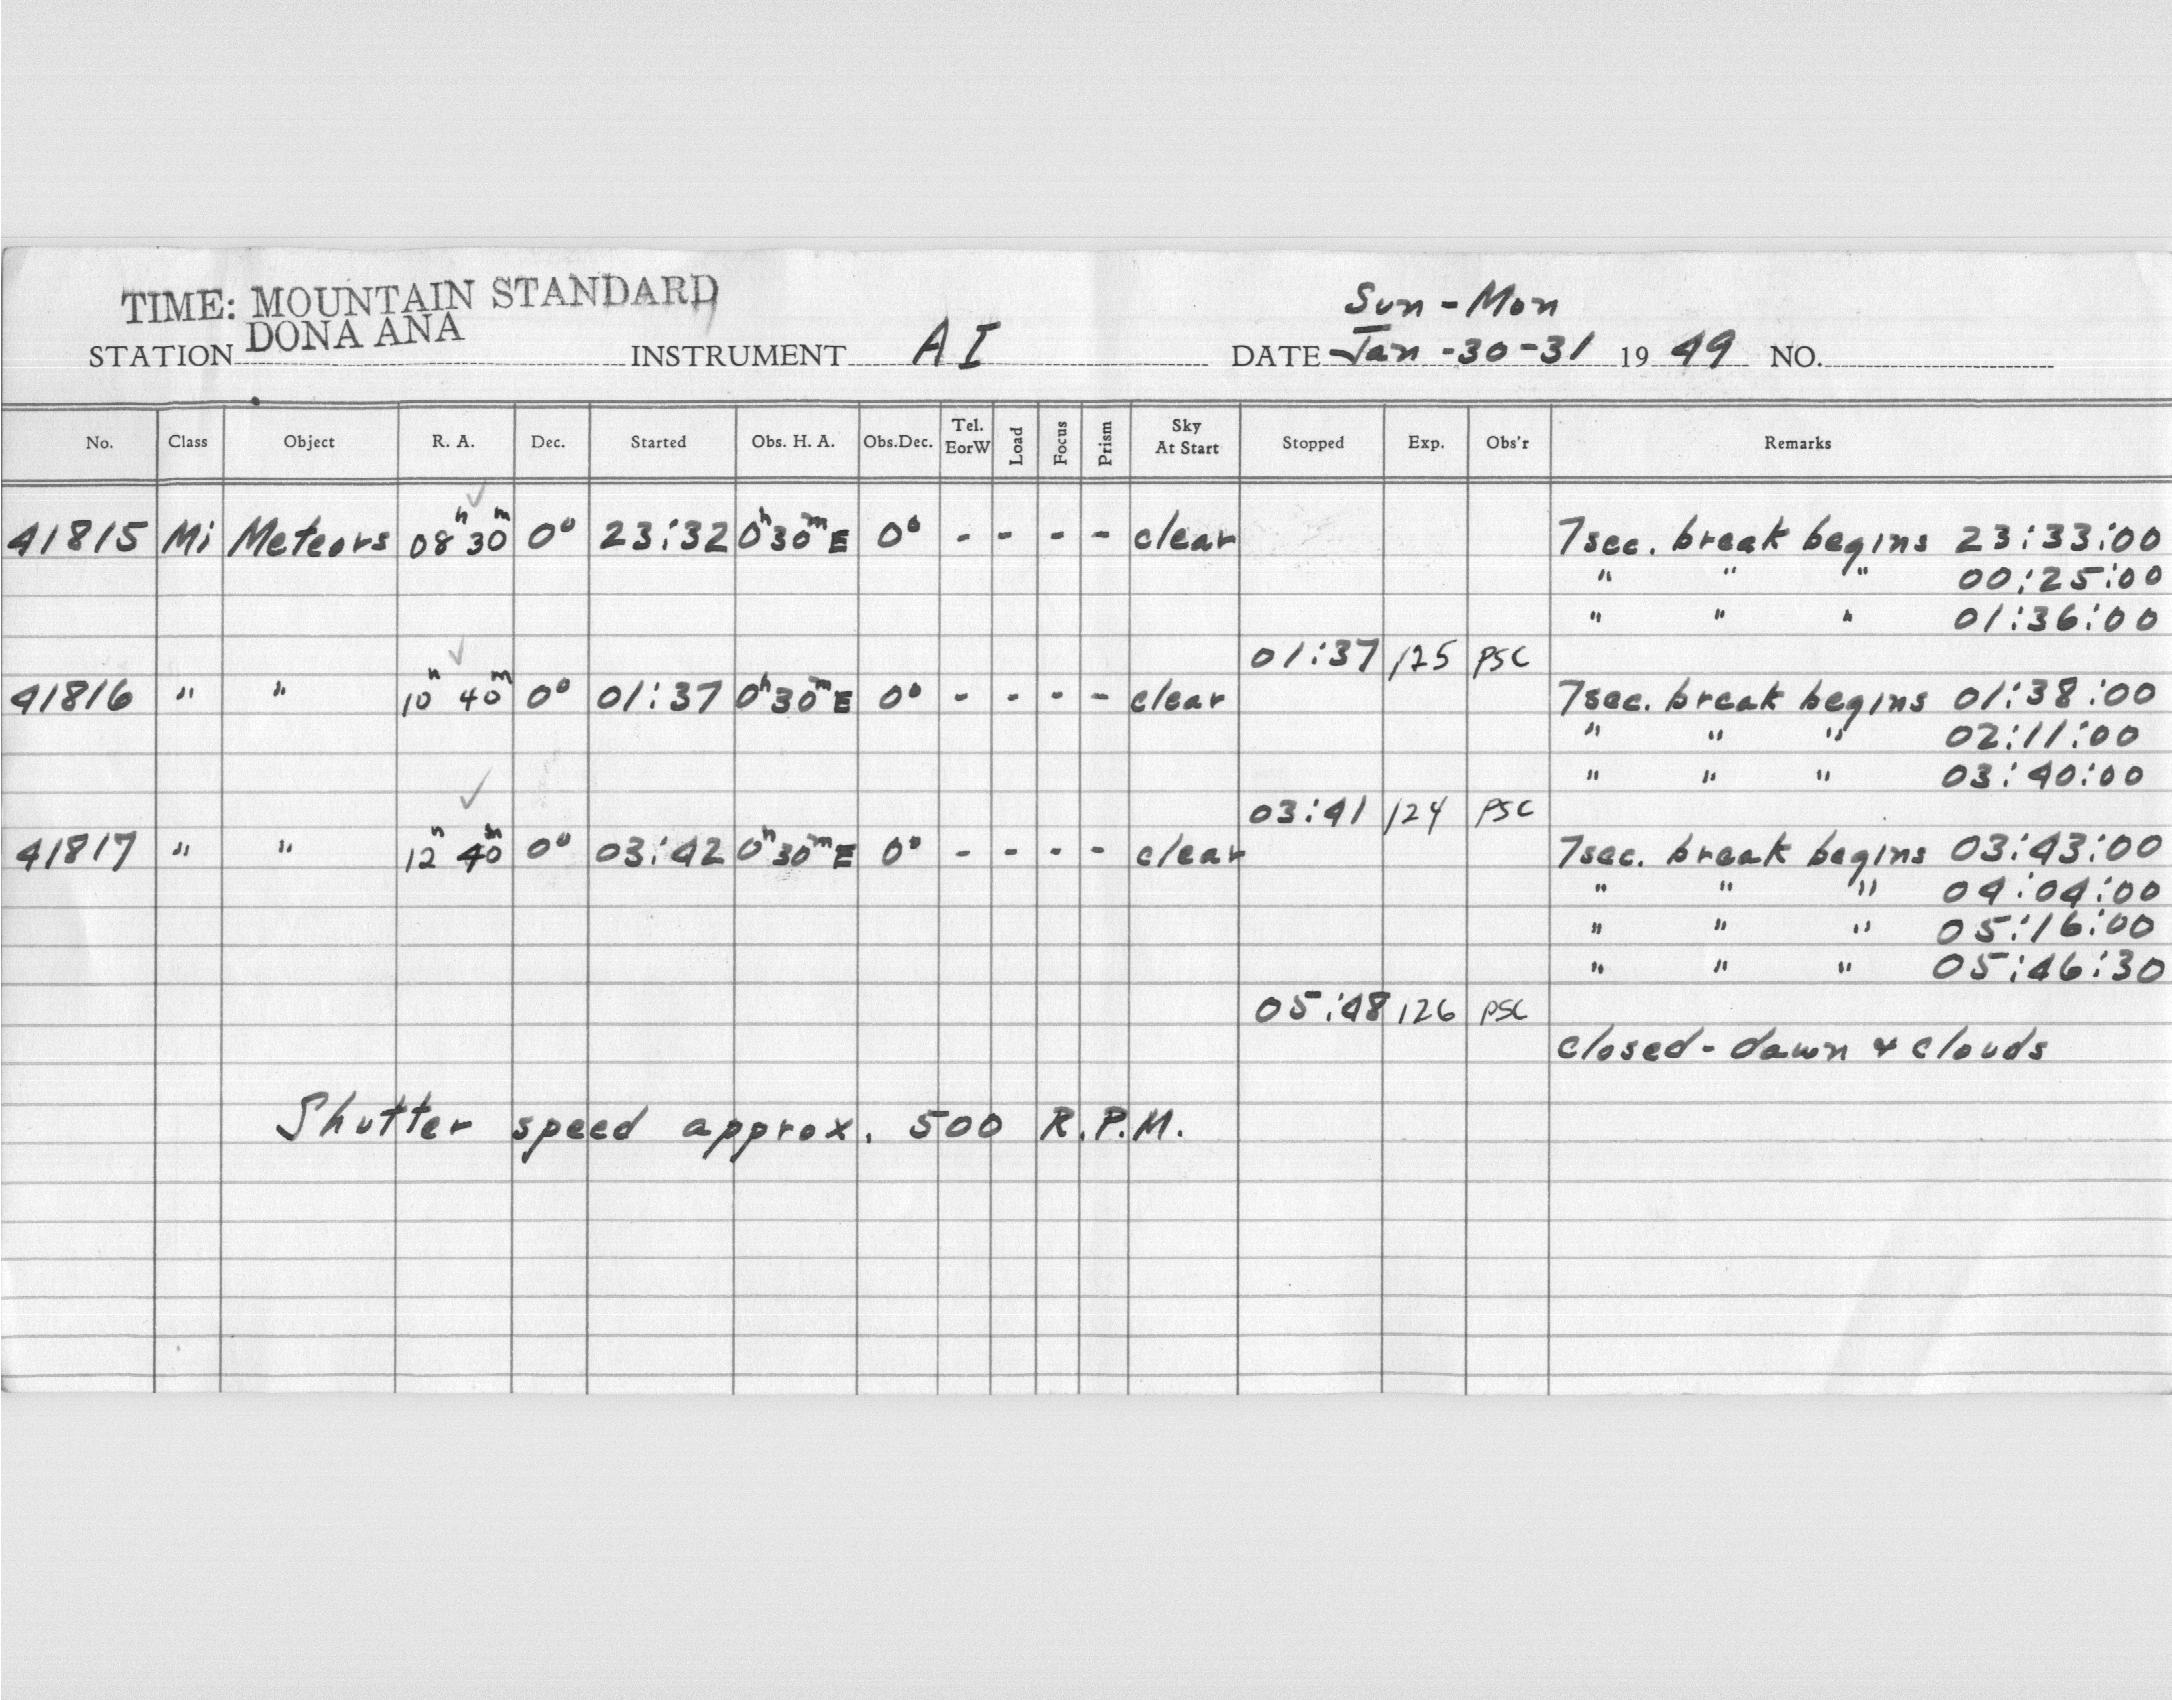 TIME: MOUNTAIN STANDARD
Sun - Mon
STATION DONA ANA INSTRUMENT AI DATE Jan - 30 - 31 19 49 NO.
No. Class Object R. A. Dec. Started Obs. H. A. Obs.Dec. Tel. EorW Load Focus Prism Sky At Start Stopped Exp. Obs'r Remarks
41815 Mi Meteors 08h 30m 0° 23:32 0h30mE 0° - - - - clear 7sec. break begins 23:33:00
" " " 00:25:00
" " " 01:36:00
01:37 125 PSC
41816 " " 10h 40m 0° 01:37 0h30mE 0° - - - - clear 7sec. break begins 01:38:00
" " " 02:11:00
" " " 03:40:00
03:41 124 PSC
41817 " " 12h 40m 0° 03:42 0h30mE 0° - - - - clear 7sec. break begins 03:43:00
" " " 04:04:00
" " " 05:16:00
" " " 05:46:30
05:48 126 PSC
closed - dawn & clouds
Shutter speed approx. 500 R.P.M.